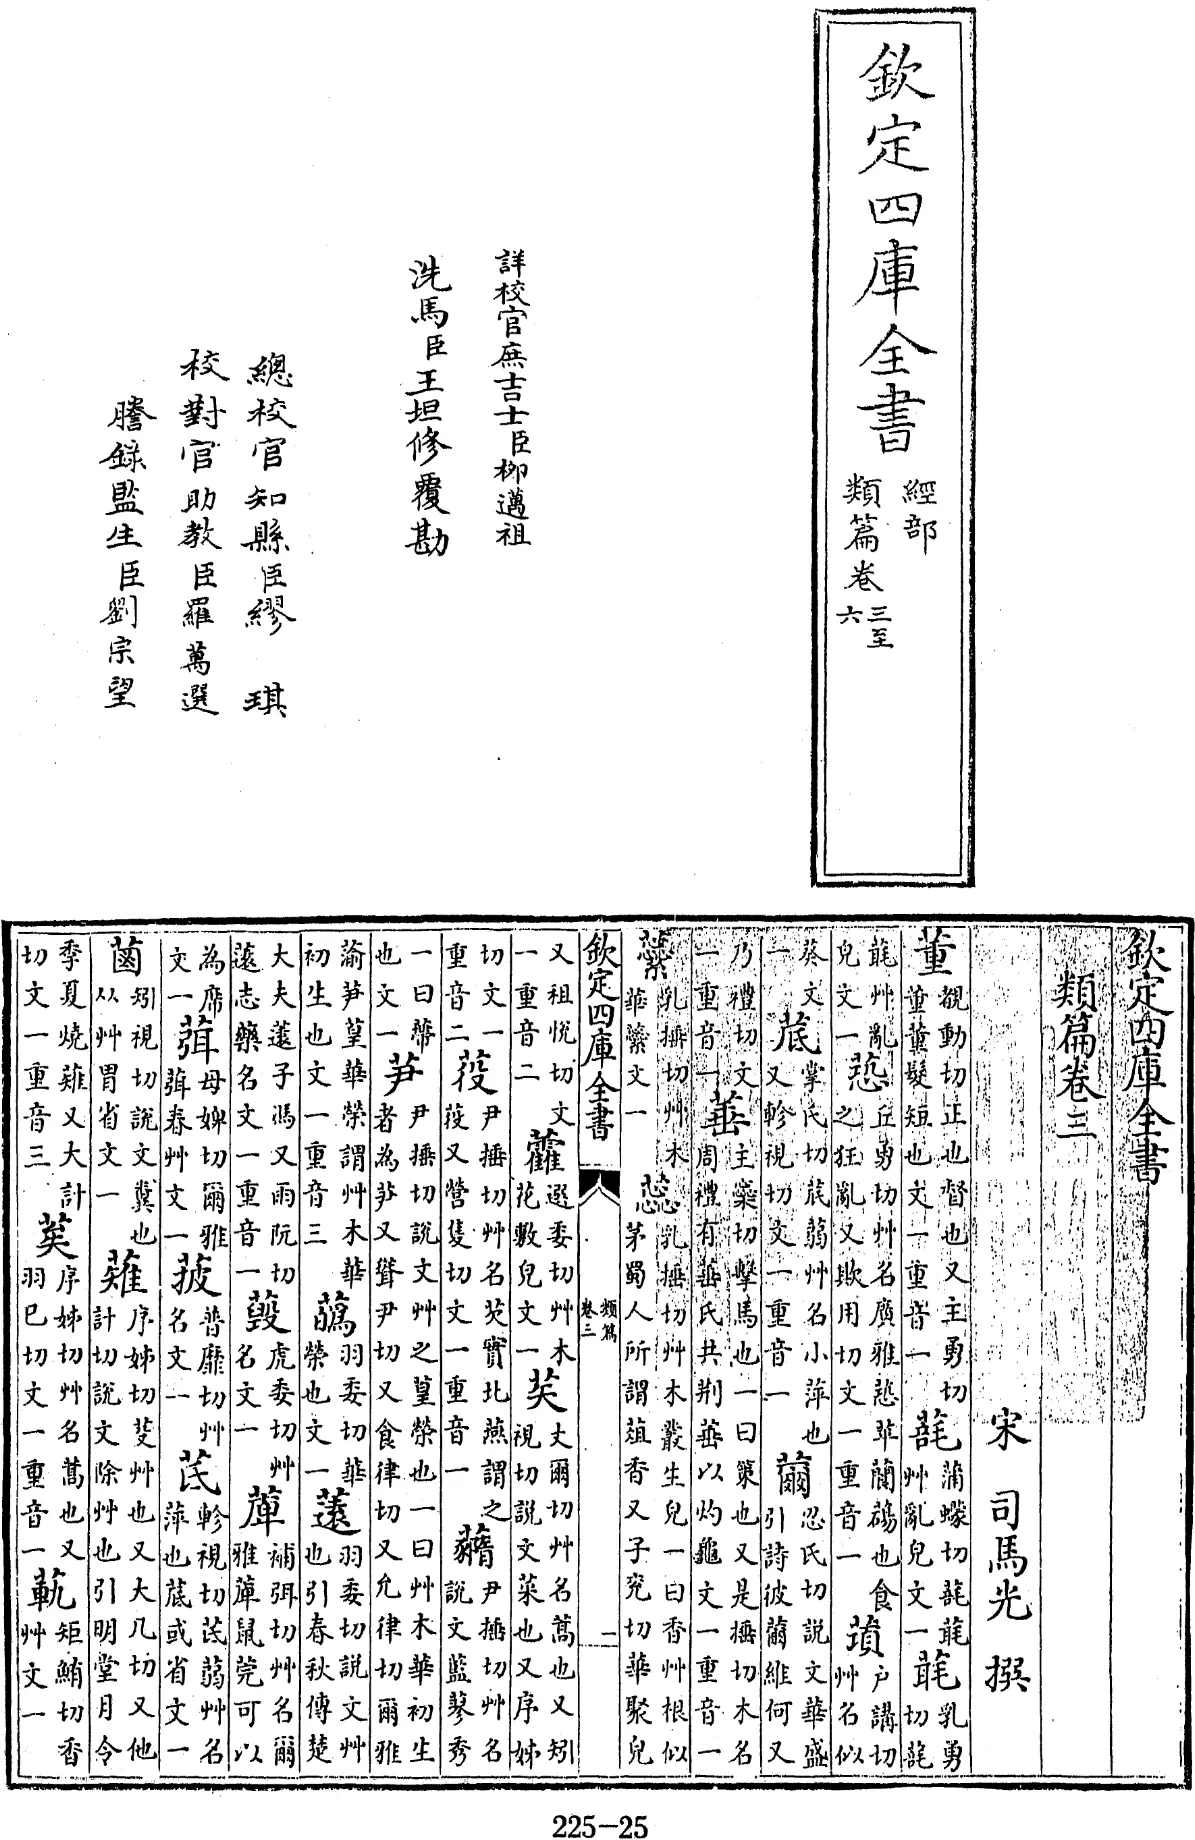 欽定四庫全書
經部
類篇卷三至六
詳校官庶吉士臣柳邁祖
洗馬臣王坦修覆勘
總校官知縣臣繆琪
校對官助教臣羅萬選
謄錄監生臣劉宗望
欽定四庫全書
類篇卷三
宋 司馬光 撰
董覩動切正也督也又主勇切董董髮短也文一重音一 蒲蠓切艸亂皃文一 乳勇切
艸亂皃文一 丘勇切艸名廣雅也食之狂亂又欺用切文一重音一 戶講切艸名似
葵文一菧掌氏切菧蒻艸名小萍也又軫視切文一重音一薾忍氏切說文華盛引詩彼薾維何又
乃禮切文一重音一菙主橤切擊馬也一曰策也又是捶切木名周禮有菙氏共荆菙以灼龜文一重音一
蘂乳捶切艸木華蘂文一蕊乳捶切艸木叢生皃一曰香艸根似茅蜀人所謂葅香又子兖切華聚皃
欽定四庫全書
類篇
卷三
一
又祖悅切文一重音二 選委切艸木花敷皃文一苵丈爾切艸名蒿也又矧視切說文菜也又序姊
切文一重音二 尹捶切艸名芡實北燕謂之又營隻切文一重音一 尹捶切艸名說文藍蓼秀
一曰也文一芛尹捶切說文艸之葟榮也一曰艸木華初生者為芛又聳尹切又食律切又允律切爾雅
蕍芛葟華榮謂艸木華初生也文一重音三蘤羽委切華榮也文一薳羽委切說文艸也引春秋傳楚
大夫薳子馮又雨阮切薳志藥名文一重音一 虎委切艸名文一䔑補弭切艸名爾雅䔑鼠莞可以
為席文一葞母婢切爾雅葞春艸文一 普靡切艸名文一茋軫視切茋蒻艸名萍也菧或省文一
矧視切說文糞也从艸胃省文一薙序姊切芟艸也又大几切又他計切說文除艸也引明堂月令
季夏燒薙又大計切文一重音三 序姊切艸名蒿也又羽巳切文一重音一 矩鮪切香艸文一
225-25